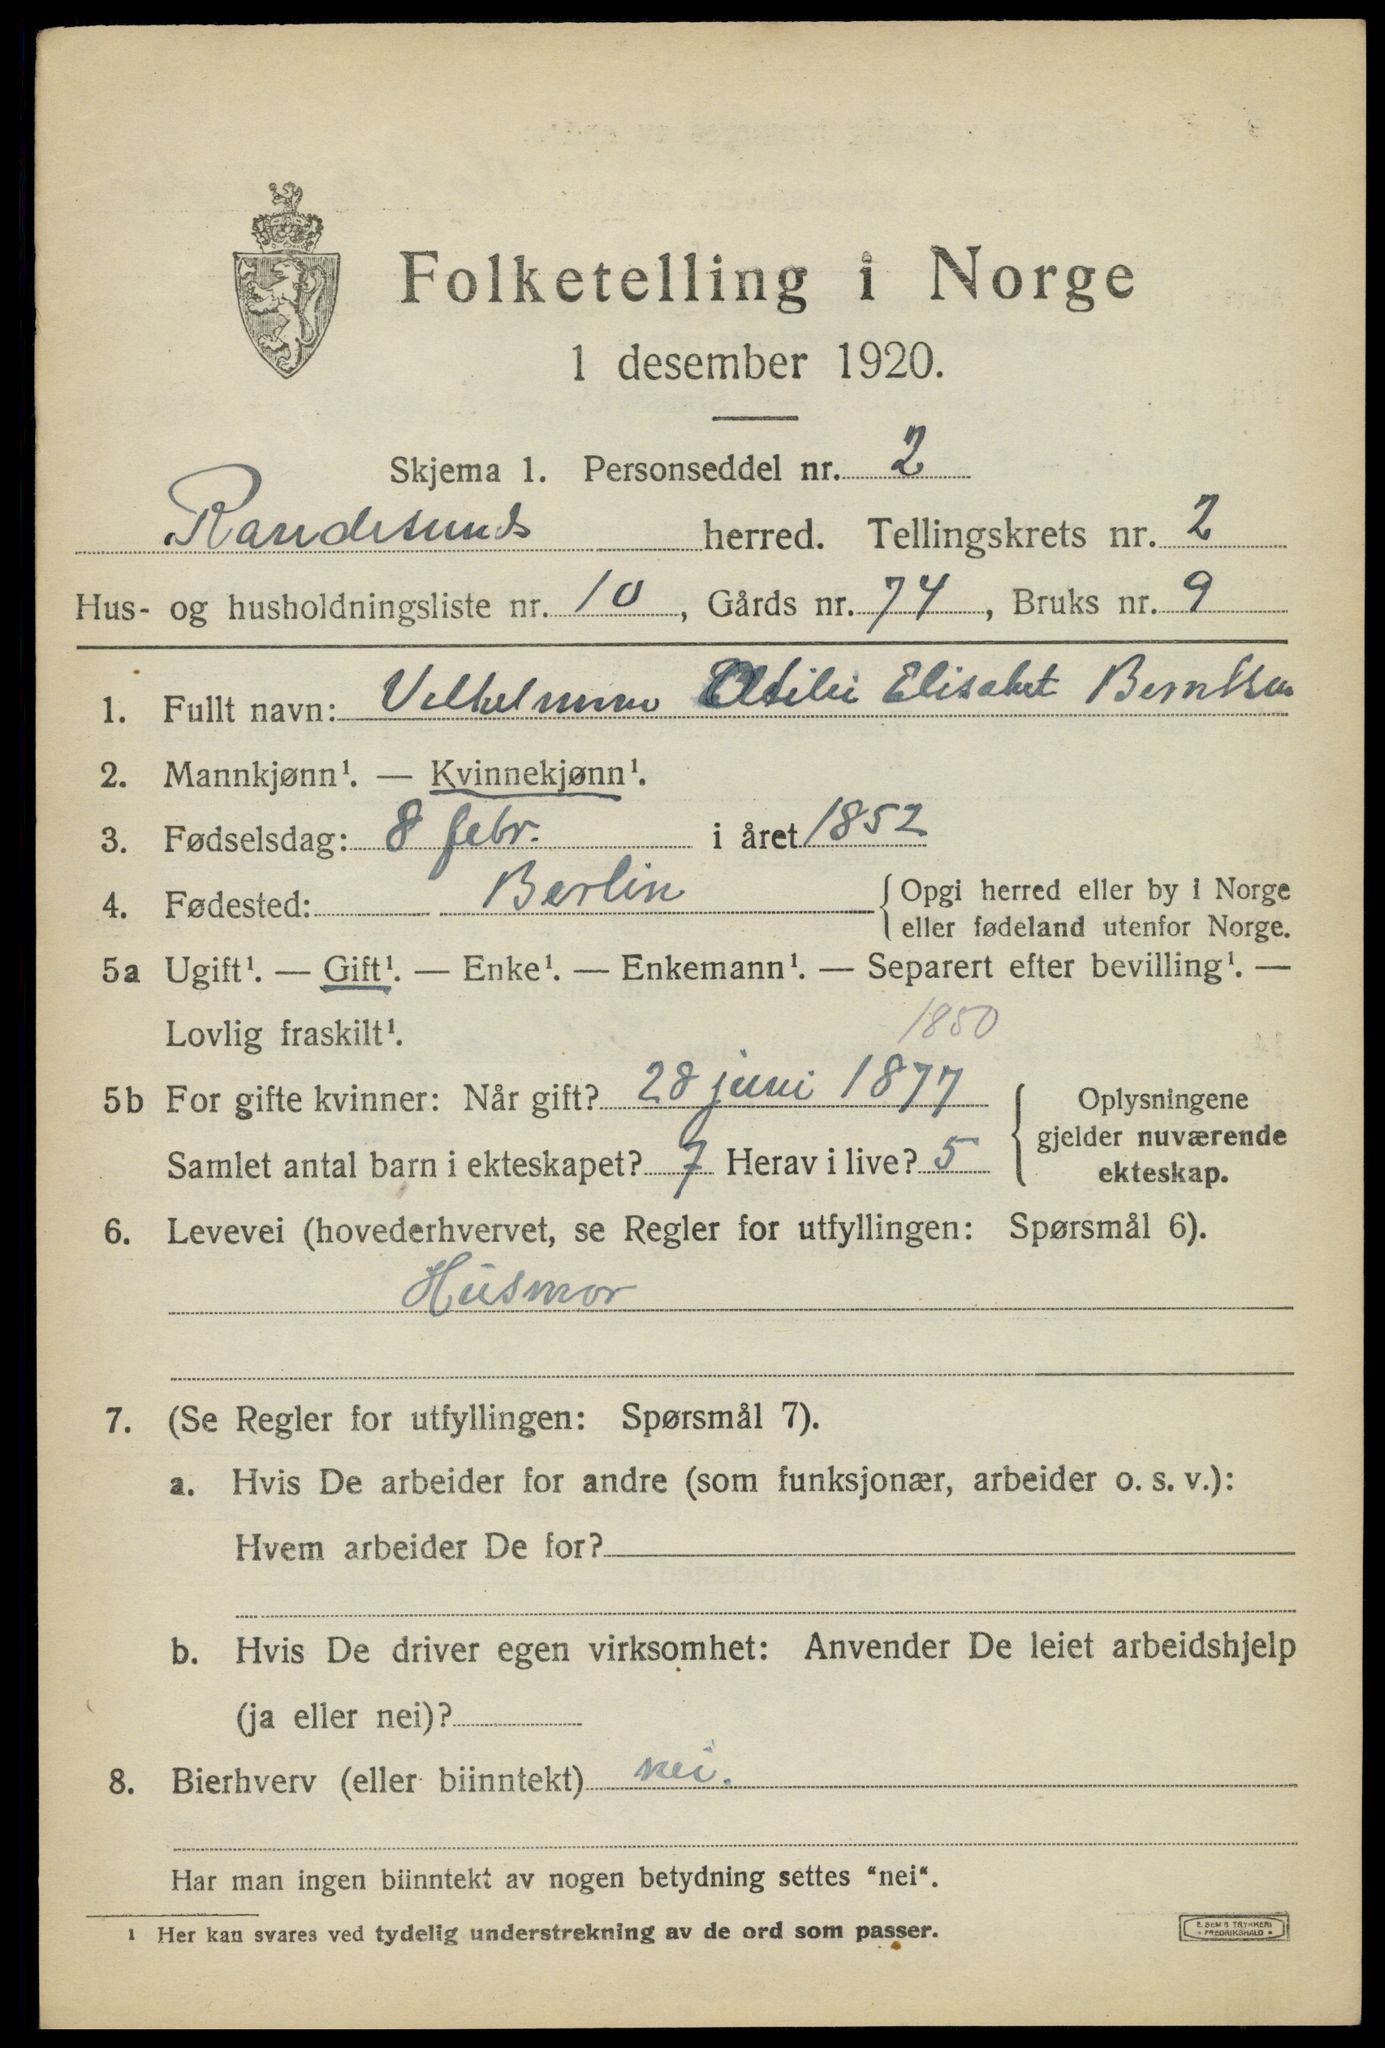 Folketelling i Norge
1 desember 1920.
Skjema 1. Personseddel nr. 2
Randesunds herred. Tellingskrets nr. 2
Hus- og husholdningsliste nr. 10, Gårds nr. 74, Bruks nr. 9
1. Fullt navn: Elisabet Berntsen
2. Mannkjønn¹. — Kvinnekjønn¹.
3. Fødselsdag: 8 febr. i året 1852
4. Fødested: Berlin { Opgi herred eller by i Norge
eller fødeland utenfor Norge.
5a Ugift¹. — Gift¹. — Enke¹. — Enkemann¹. — Separert efter bevilling¹. —
Lovlig fraskilt¹.
1850
5b For gifte kvinner: Når gift? 28 juni 1877
Samlet antal barn i ekteskapet? 7 Herav i live? 5
Oplysningene
gjelder nuværende
ekteskap.
6. Levevei (hovederhvervet, se Regler for utfyllingen: Spørsmål 6).
Husmor
7. (Se Regler for utfyllingen: Spørsmål 7).
a. Hvis De arbeider for andre (som funksjonær, arbeider o. s. v.):
Hvem arbeider De for?
b. Hvis De driver egen virksomhet: Anvender De leiet arbeidshjelp
(ja eller nei)?
8. Bierhverv (eller biinntekt) nei.
Har man ingen biinntekt av nogen betydning settes “nei“.
1 Her kan svares ved tydelig understrekning av de ord som passer.
E. SEM'S TRYKKERI
FREDRIKSHALD